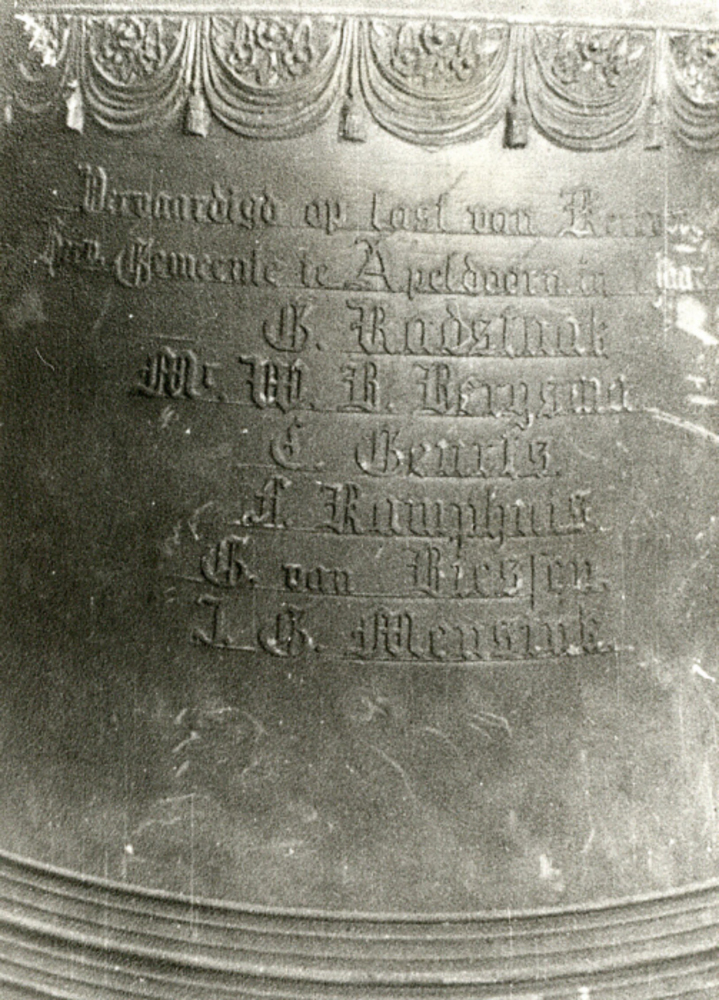 Vervaardigd op last van
Gemeente te Apeldoorn in
G. Radstaak
Mr. W. B. Bergsma
C. Geurts.
A. Kamphuis.
G. van Biessen.
J. G. Mensink.